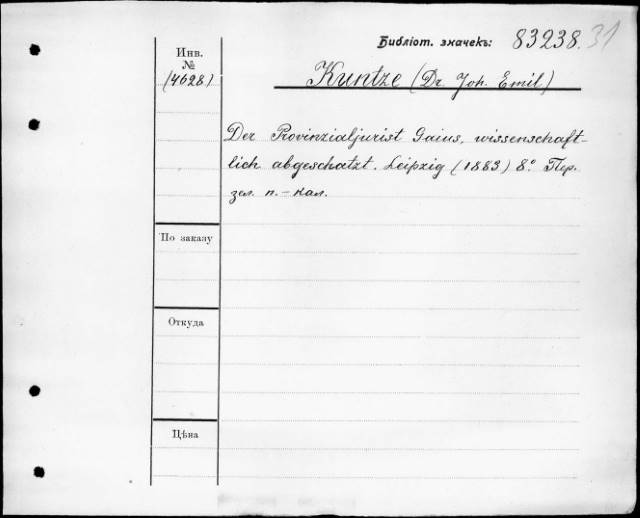 Библіот. значекъ: 83238. 31
Инв.
№
(4628)
Kuntze (Dr. Joh. Emil)
Der Provinzialjurist Gaius, wissenschaft-
lich abgeschatzt. Leipzig (1883) 8º. Пер.
зел. п.-кал.
По заказу
Откуда
Цѣна